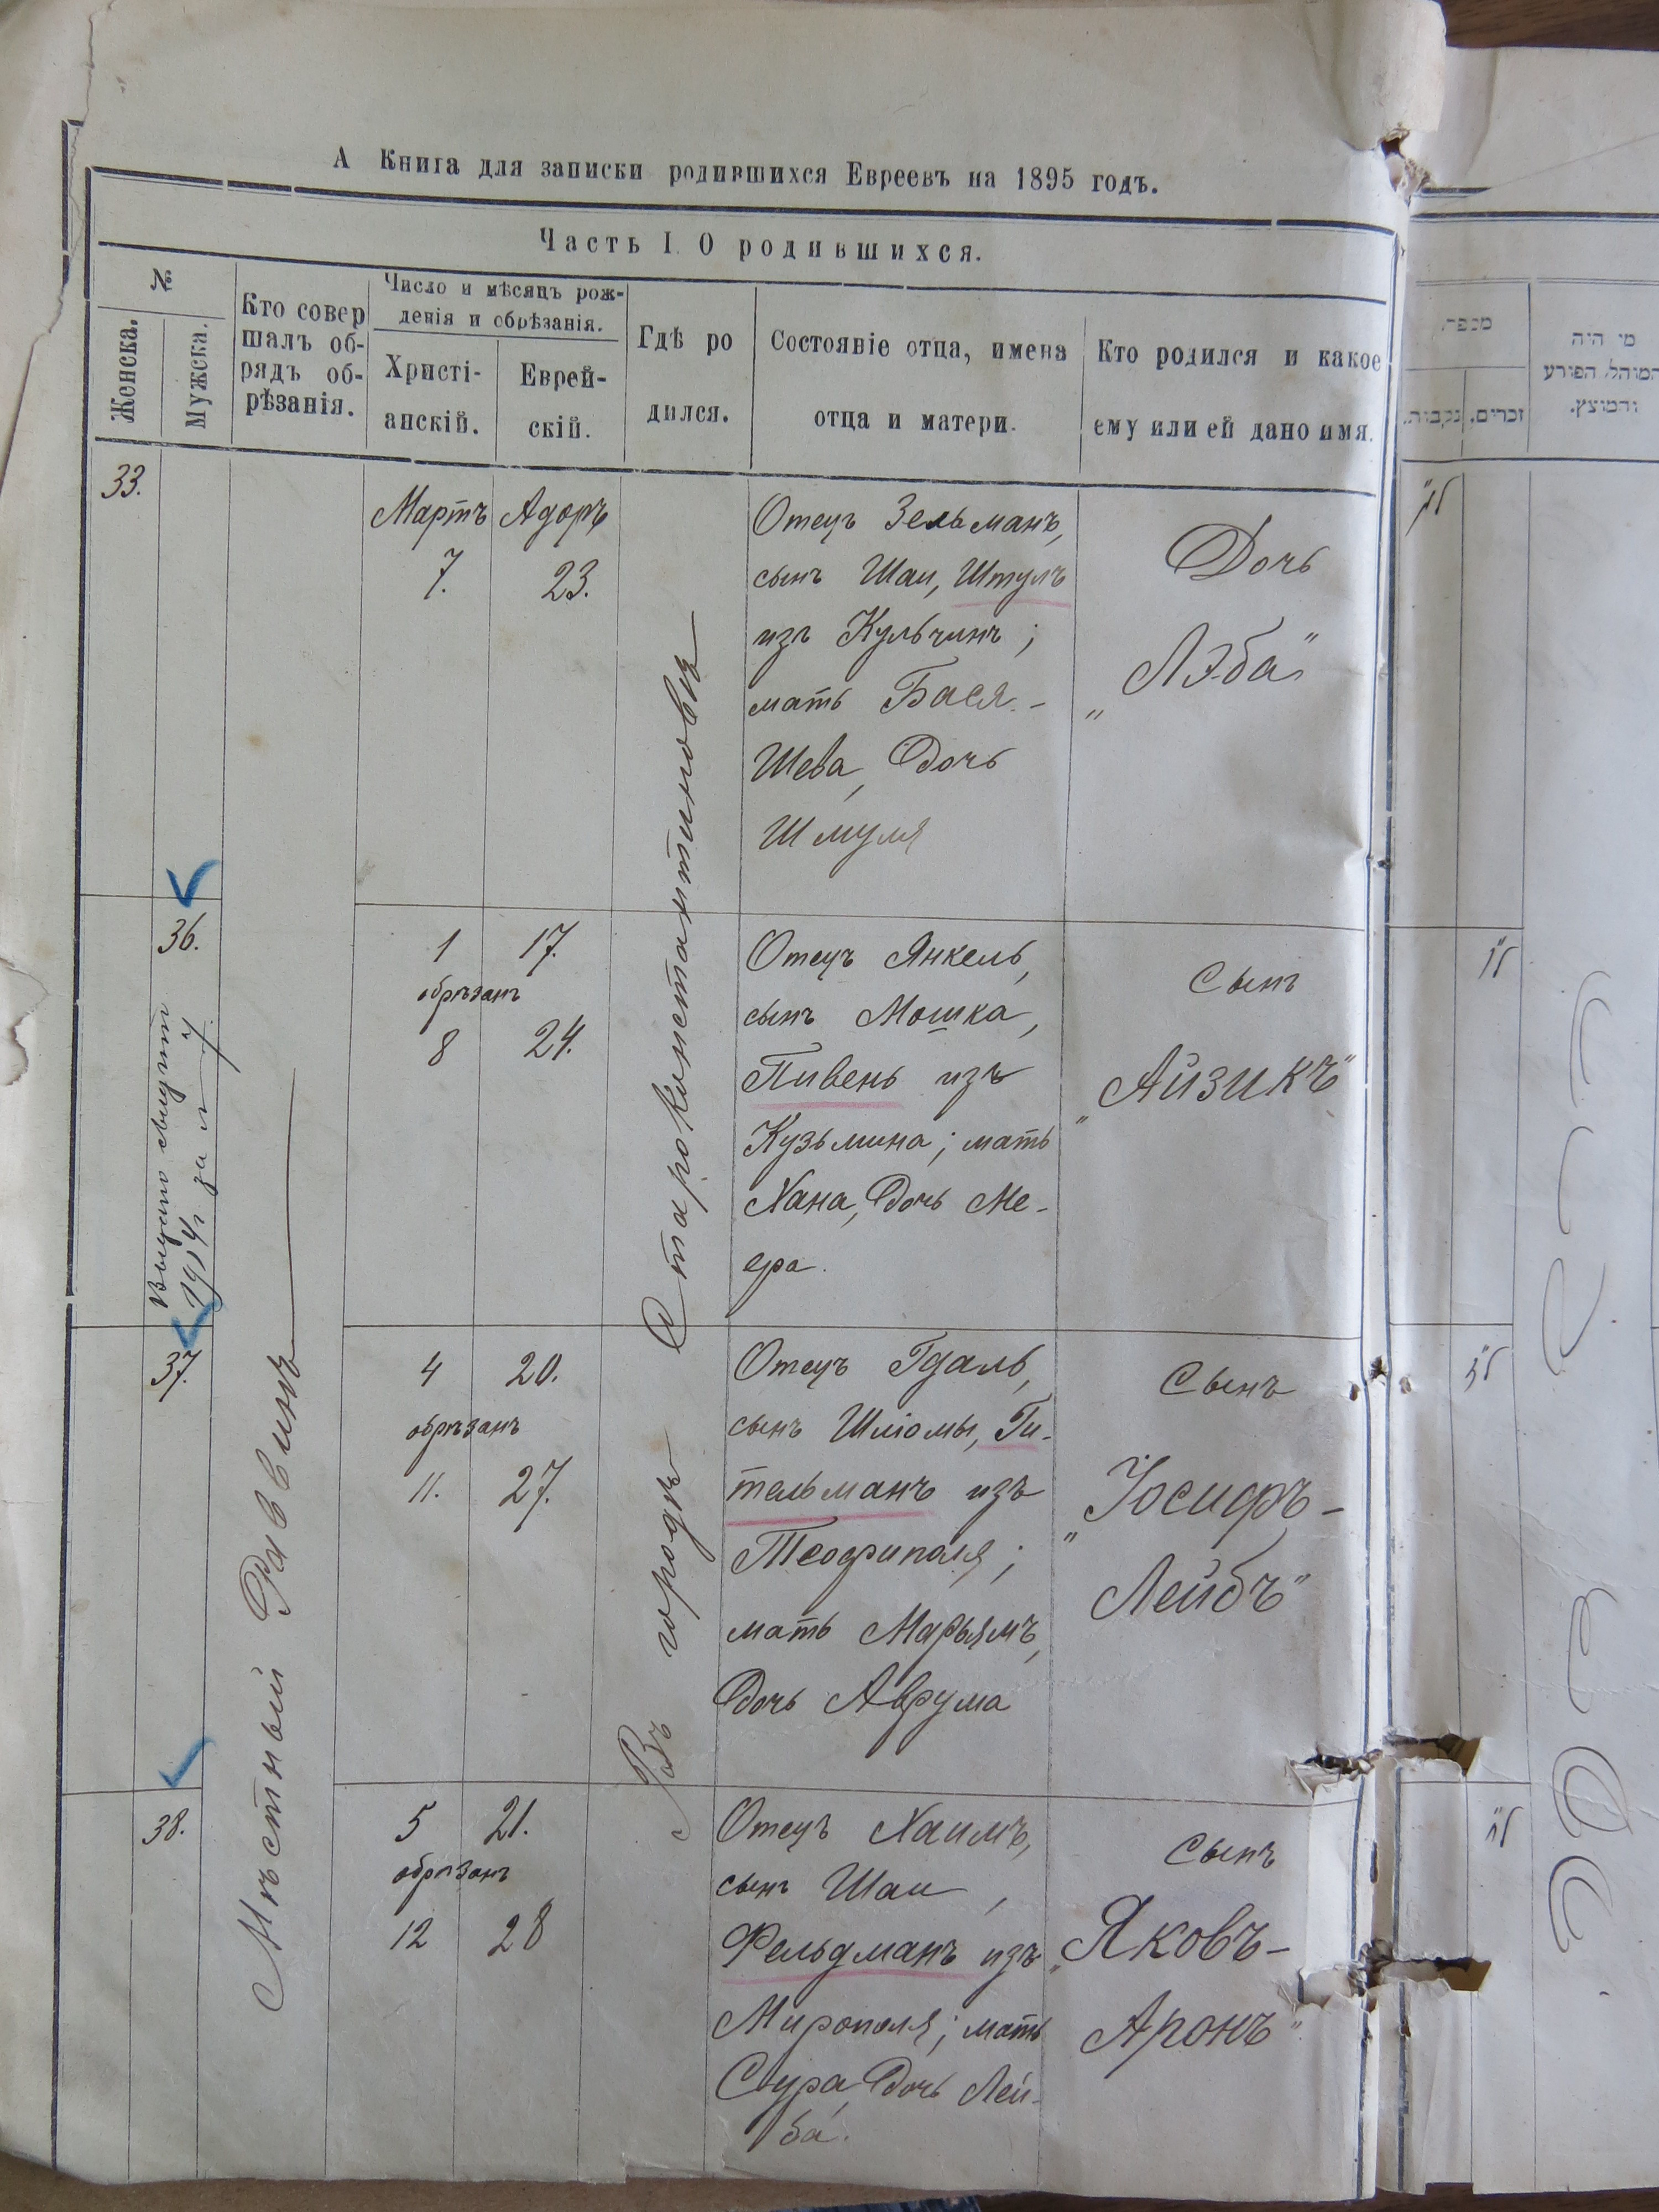 А Книга для записки родившихся Евреевъ на 1895 годъ.
Часть I. О родившихся.
№
Женска.
Мужска.
Кто совер
шалъ об-
рядъ об-
рѣзанія.
Число и мѣсяцъ рож-
денія и обрѣзанія.
Христі-
анскій.
Еврей-
скій.
Гдѣ ро
дился.
Состояніе отца, имена
отца и матери.
Кто родился и какое
ему или ей дано имя.
מספר
נקבות.
זכרים.
מי היה
המוהל הפורע
והמוצץ.
Мѣстный Раввинъ
Въ городѣ Староконстантиновѣ
33.
Мартъ
7.
Адоръ
23.
Отецъ Зельманъ,
сынъ Шаи, Штулъ
изъ Кульчинъ;
мать Бася-
Шева, дочь
Шмуля
Дочь
„Лэба"
36.
1
17.
обрѣзанъ
8
24.
Отецъ Янкель,
сынъ Мошка,
Пивень изъ
Кузьмина; мать
Хана, дочь Ме-
ера.
Сынъ
„Айзикъ"
1914г за № 7.
37.
4
20.
обрѣзанъ
11.
27.
Отецъ Гдаль,
сынъ Шліомы, Ги-
тельманъ изъ
Теофиполя;
мать Марьямъ,
дочь Аврума
Сынъ
„Іосифъ-
Лейбъ"
38.
5
21.
обрѣзанъ
12
28
Отецъ Хаимъ,
сынъ Шаи,
Фельдманъ изъ
Мирополя; мать
Сура, дочь Лей-
ба.
Сынъ
„Яковъ-
Аронъ"